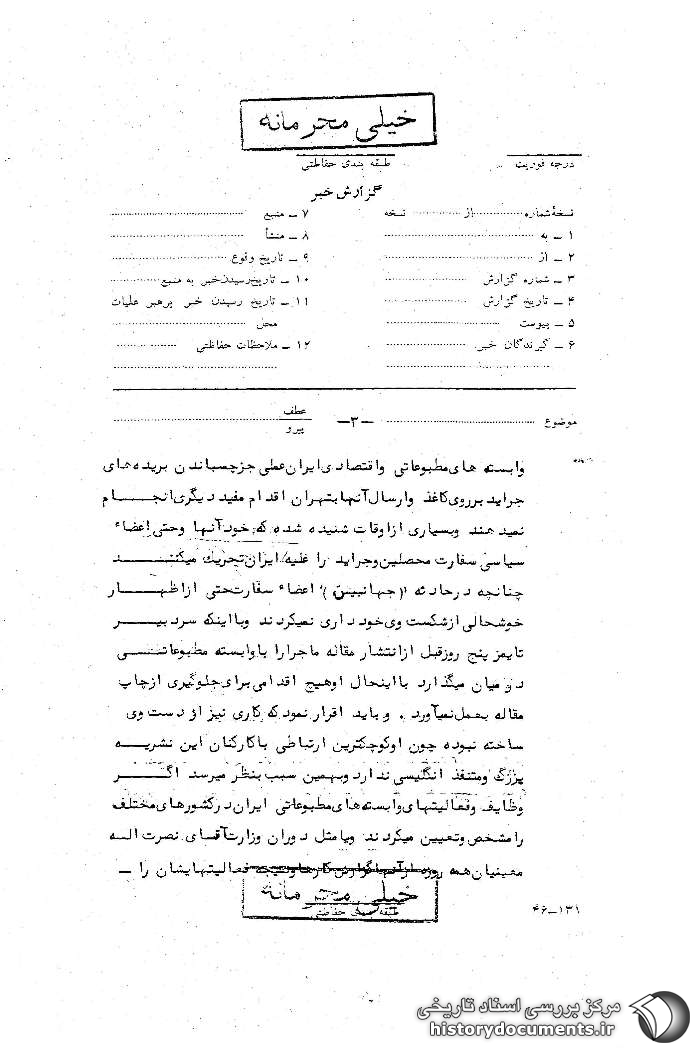 خیلی محرمانه
درجه فوریت
طبقه بندی حفاظتی
گزارش خبر
نسخه شماره .............. از .............. نسخه
۱ ــ به
۲ ــ از
۳ ــ شماره گزارش
۴ ــ تاریخ گزارش
۵ ــ پیوست
۶ ــ گیرندگان خبر
۷ ــ منبع
۸ ــ منشأ
۹ ــ تاریخ وقوع
۱۰ ــ تاریخ رسیدن خبر به منبع
۱۱ ــ تاریخ رسیدن خبر برهبر عملیات
محل
۱۲ ــ ملاحظات حفاظتی
موضوع
ــ۳ــ
عطف
پیرو
وابسته های مطبوعاتی واقتصادی ایران عملی جز چسباندن بریده های
جراید بر روی کاغذ وارسال آنها بتهران اقدام مفید دیگری انجام
نمیدهند وبسیاری ازاوقات شنیده شده که خود آنها وحتی اعضاء
سیاسی سفارت محصلین وجراید را علیه ایران تحریک میکنند
چنانچه درحادثه (( جهانبین )) اعضاء سفارت حتی ازاظهار
خوشحالی ازشکست وی خود داری نمیکردند وبا اینکه سردبیر
تایمز پنج روزقبل ازانتشار مقاله ماجرا را با وابسته مطبوعاتی
در میان میگذارد با اینحال او هیچ اقدامی برای جلوگیری ازچاپ
مقاله بعمل نمیآورد . و باید اقرار نمود که کاری نیز از دست وی
ساخته نبوده چون او کوچکترین ارتباطی با کارکنان این نشریه
بزرگ ومتنفذ انگلیسی ندارد وبهمین سبب بنظر میرسد اگر
وظایف وفعالیتهای وابسته های مطبوعاتی ایران درکشورهای مختلف
را مشخص وتعیین میکردند ویا مثل دوران وزارت آقای نصرت اله
معینیان همه روزه از آنها گزارش کارها ونتیجه فعالیتهایشان را ــ
خیلی محرمانه
طبقه بندی حفاظتی
۱۳۱ــ۴۶
مرکز بررسی اسناد تاریخی
historydocuments.ir